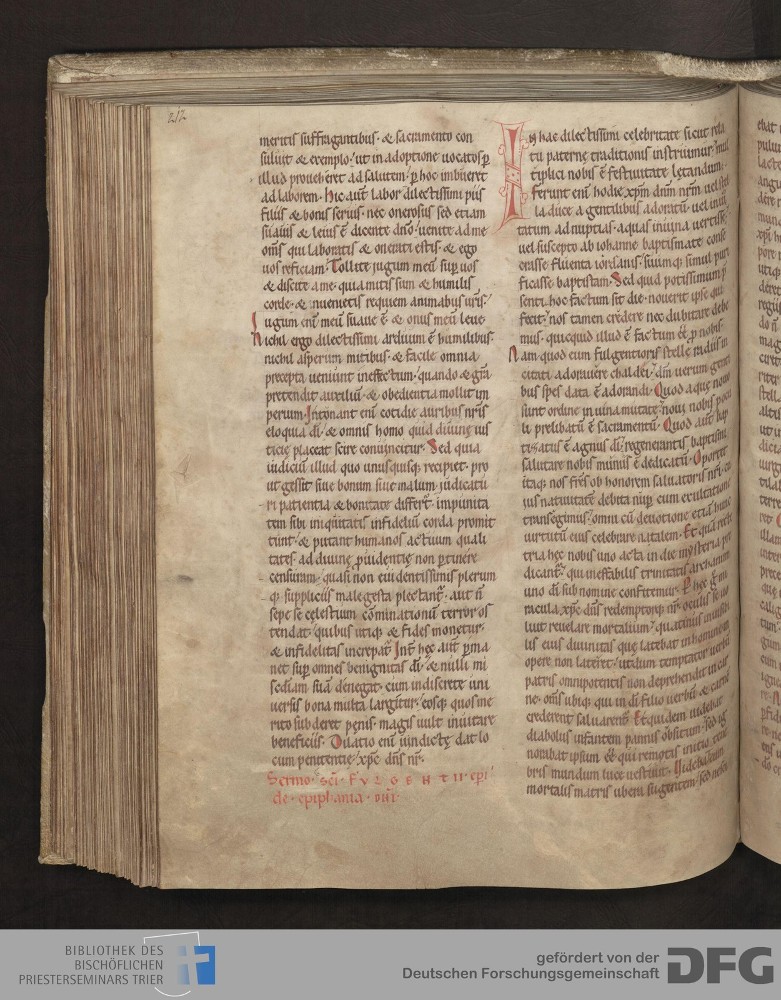 217
meritis suffragantibus · & sacramento con
suluit & exemplo · ut in adoptione uocatos ꝑ
illud proueheret ad salutem · ꝑ hoc imbueret
ad laborem · Hic aut̄ labor dilectissimi piis
filiis & bonis seruis · nec onerosus sed etiam
suauis & leuis ē dicente dn̄o · uenite ad me
om̄s qui laboratis & onerati estis · & ego
uos reficiam · Tollite jugum meū sup̄ uos
& discite a me · quia mitis sum & humilis
corde · & inuenietis requiem animabus ur̄is ·
Jugum eni̅ meū suaue ē · & onus meū leue ·
Nichil ergo dilectissimi arduum ē humilibus ·
nichil asperum mitibus · & facile omnia
precepta ueniunt in effectum · quando & gr̄a
pretendit auxiliū · & obedientia mollit im
perium · Intonant eni̅ cotidie auribus nr̄is
eloquia dī · & omnis homo quid diuinę ius
ticię placeat scire conuincitur · Sed quia
iudiciū illud quo unusquisq; recipiet · pro
ut gessit siue bonum siue malum · judicatu
ri patientia & bonitate differt̄ · impunita
tem sibi iniquitatis infideliū corda promit
tunt · & putant humanos actuum quali
tates · ad diuinę ꝓuidentię non ꝑtinere
censuram · quasi non euidentissimis plerum
q; suppliciis male gesta plectant̄ · aut n̄
sepe se celestium cōminationū terror os
tendat · quibus utiq; & fides monetur ·
& infidelitas increpat̄ · Int̄ hęc aut̄ ꝑma
net sup̄ omnes benignitas dī · & nulli mi
sc̄diam suā denegat · cum indiscrete uni
uersis bona multa largit̄ · eosq; quos me
rito subderet penis · magis uult inuitare
beneficiis · Dilatio eni̅ uindictę dat lo
cum penitentię · xp̄c dn̄s nr̄ ·
Sermo · sc̄i · FULGENTII · epī
de · epiphania · dn̄i ·
In hac dilectissimi celebritate sicut rela
tu paternę traditionis instruimur · mul
tiplici nobis ē festiuitate lętandum ·
ferunt eni̅ hodie xp̄m dn̄m nr̄m uel stel
la duce a gentilibus adoratū · uel inui
tatum ad nuptias · aquas in uina uertisse ·
uel suscepto ab iohanne baptismate conse
crasse fluenta iordanis · suumq; simul puri
ficasse baptistam · Sed quid potissimum p̄
senti hoc factum sit die · nouerit ipse qui
fecit · nos tamen credere nec dubitare debe
mus · quicquid illud ē factum ēē ꝓ nobis ·
Nam quod cum fulgentioris stellę radiis in
citati adorauere chaldei · dm̄ uerum genti
bus spes data ē adorandi · Quod aquę nouo
sunt ordine in uina mutatę · noui nobis pocu
li prelibatū ē sacramentū · Quod aut̄ bap
tizatus ē agnus dī · regenerantis baptismi
salutare nobis munus ē dedicatū · Oportet
itaq; nos fr̄es ob honorem saluatoris nr̄i · cu
ius natiuitatē debita nup̄ cum exultatione
transegimus · omni cū deuotione etiam hunc
uirtutū eius celebrare natalem · Et quā recte
tria hęc nobis uno acta in die mysteria p̄
dicant̄ · qui ineffabilis trinitatis archanum
uno dī sub nomine confitemur · Per hęc g̊ mi
racula xp̄c dn̄s redemptorq; nr̄ oculis se uo
luit reuelare mortalium · quatinus inuisibi
lis eius diuinitas quę latebat in homine · in
opere non lateret · ut dum temptatur uerbū
patris omnipotentis non deprehendit in car
ne · om̄s ubiq; qui in dī filio uerbū & carnē
crederent saluarent̄ · Et quidem uidebat
diabolus infantem pannis obsitum · sed ig
norabat ipsum ēē qui remotis initio tene
bris mundum luce uestiuit · Uidebat eum
mortalis matris ubera sugentem · sed nescie
BIBLIOTHEK DES
BISCHÖFLICHEN
PRIESTERSEMINARS TRIER
gefördert von der
Deutschen Forschungsgemeinschaft
DFG